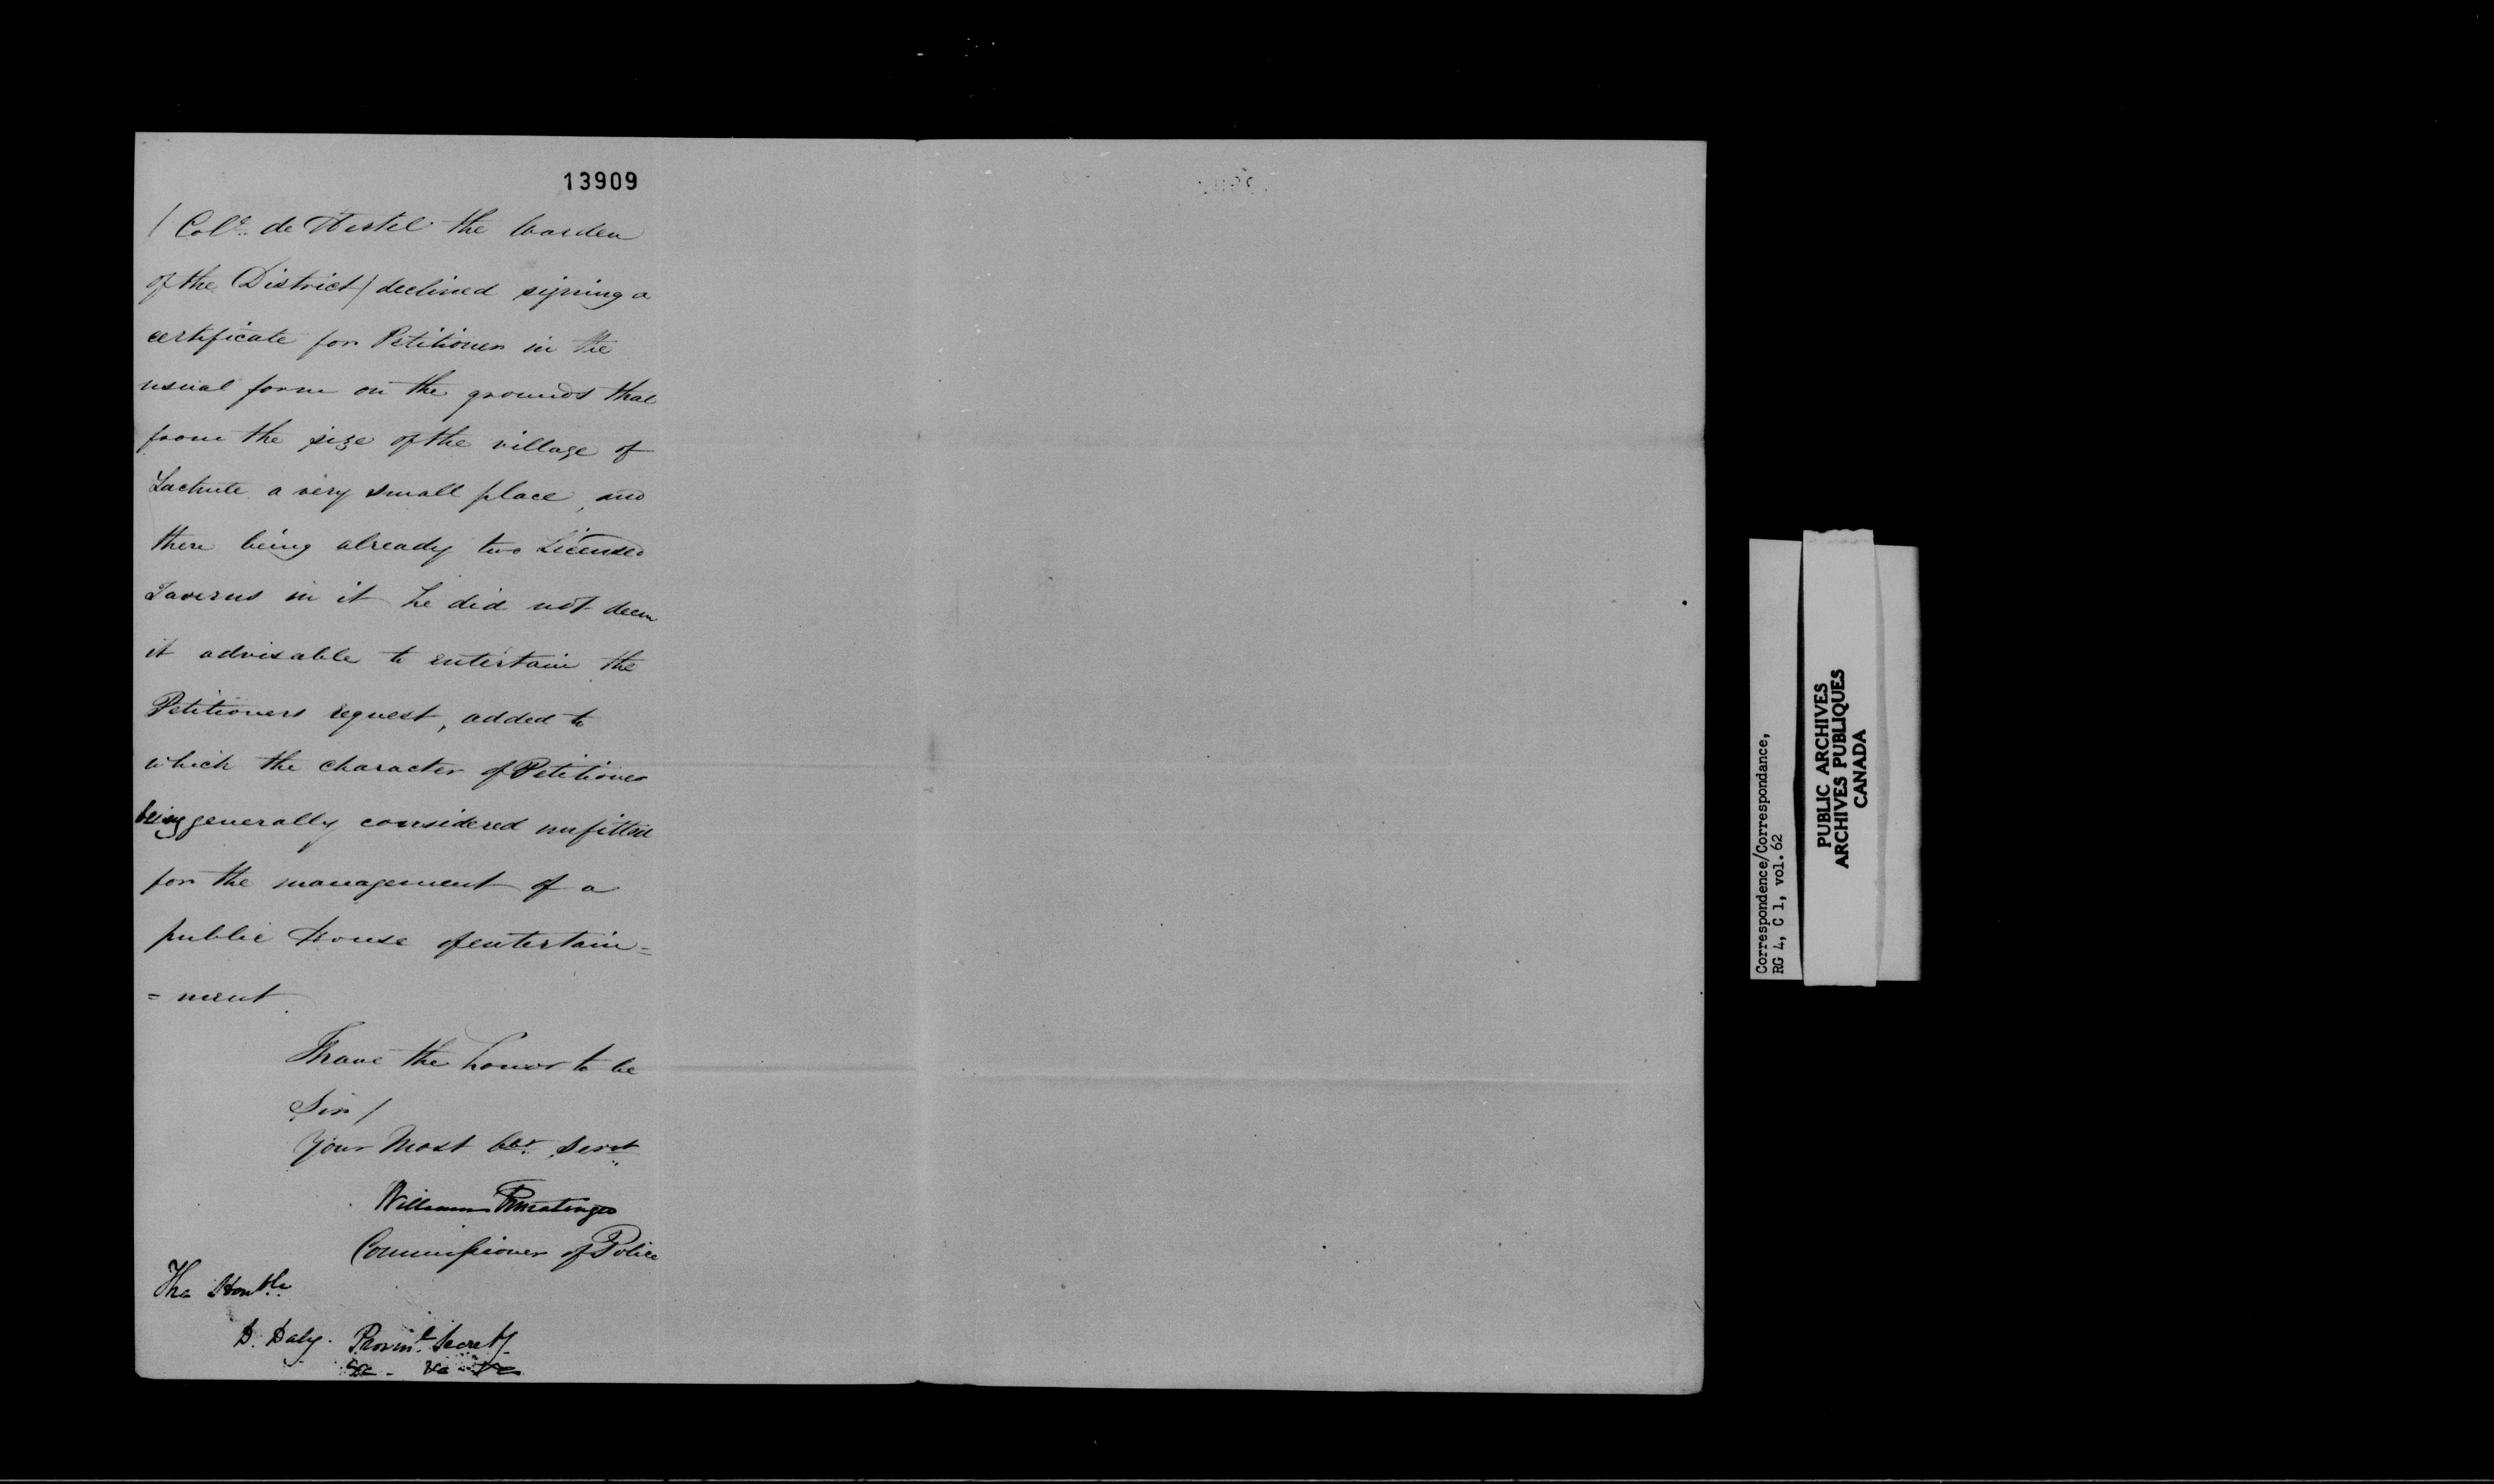 13909
( Col. de Hertel the Warden
of the District) declined signing a
certificate for Petitioner in the
usual form on the grounds that
from the size of the village of
Lachute a very small place, and
there being already two Licensed
Taverns in it he did not deem
it advisable to entertain the
Petitioners request, added to
which the character of Petitioner
being generally considered unfitted
for the management of a
public House of entertain=
=ment.
I have the honor to be
Sir /
Your Most Obt. Servt
William Ermatinger
Commissioner of Police
The Honble
D. Daly. Provinl. Secrety
&c - &c - &c
Correspondence/Correspondance,
RG 4, C 1, vol. 62
PUBLIC ARCHIVES
ARCHIVES PUBLIQUES
CANADA